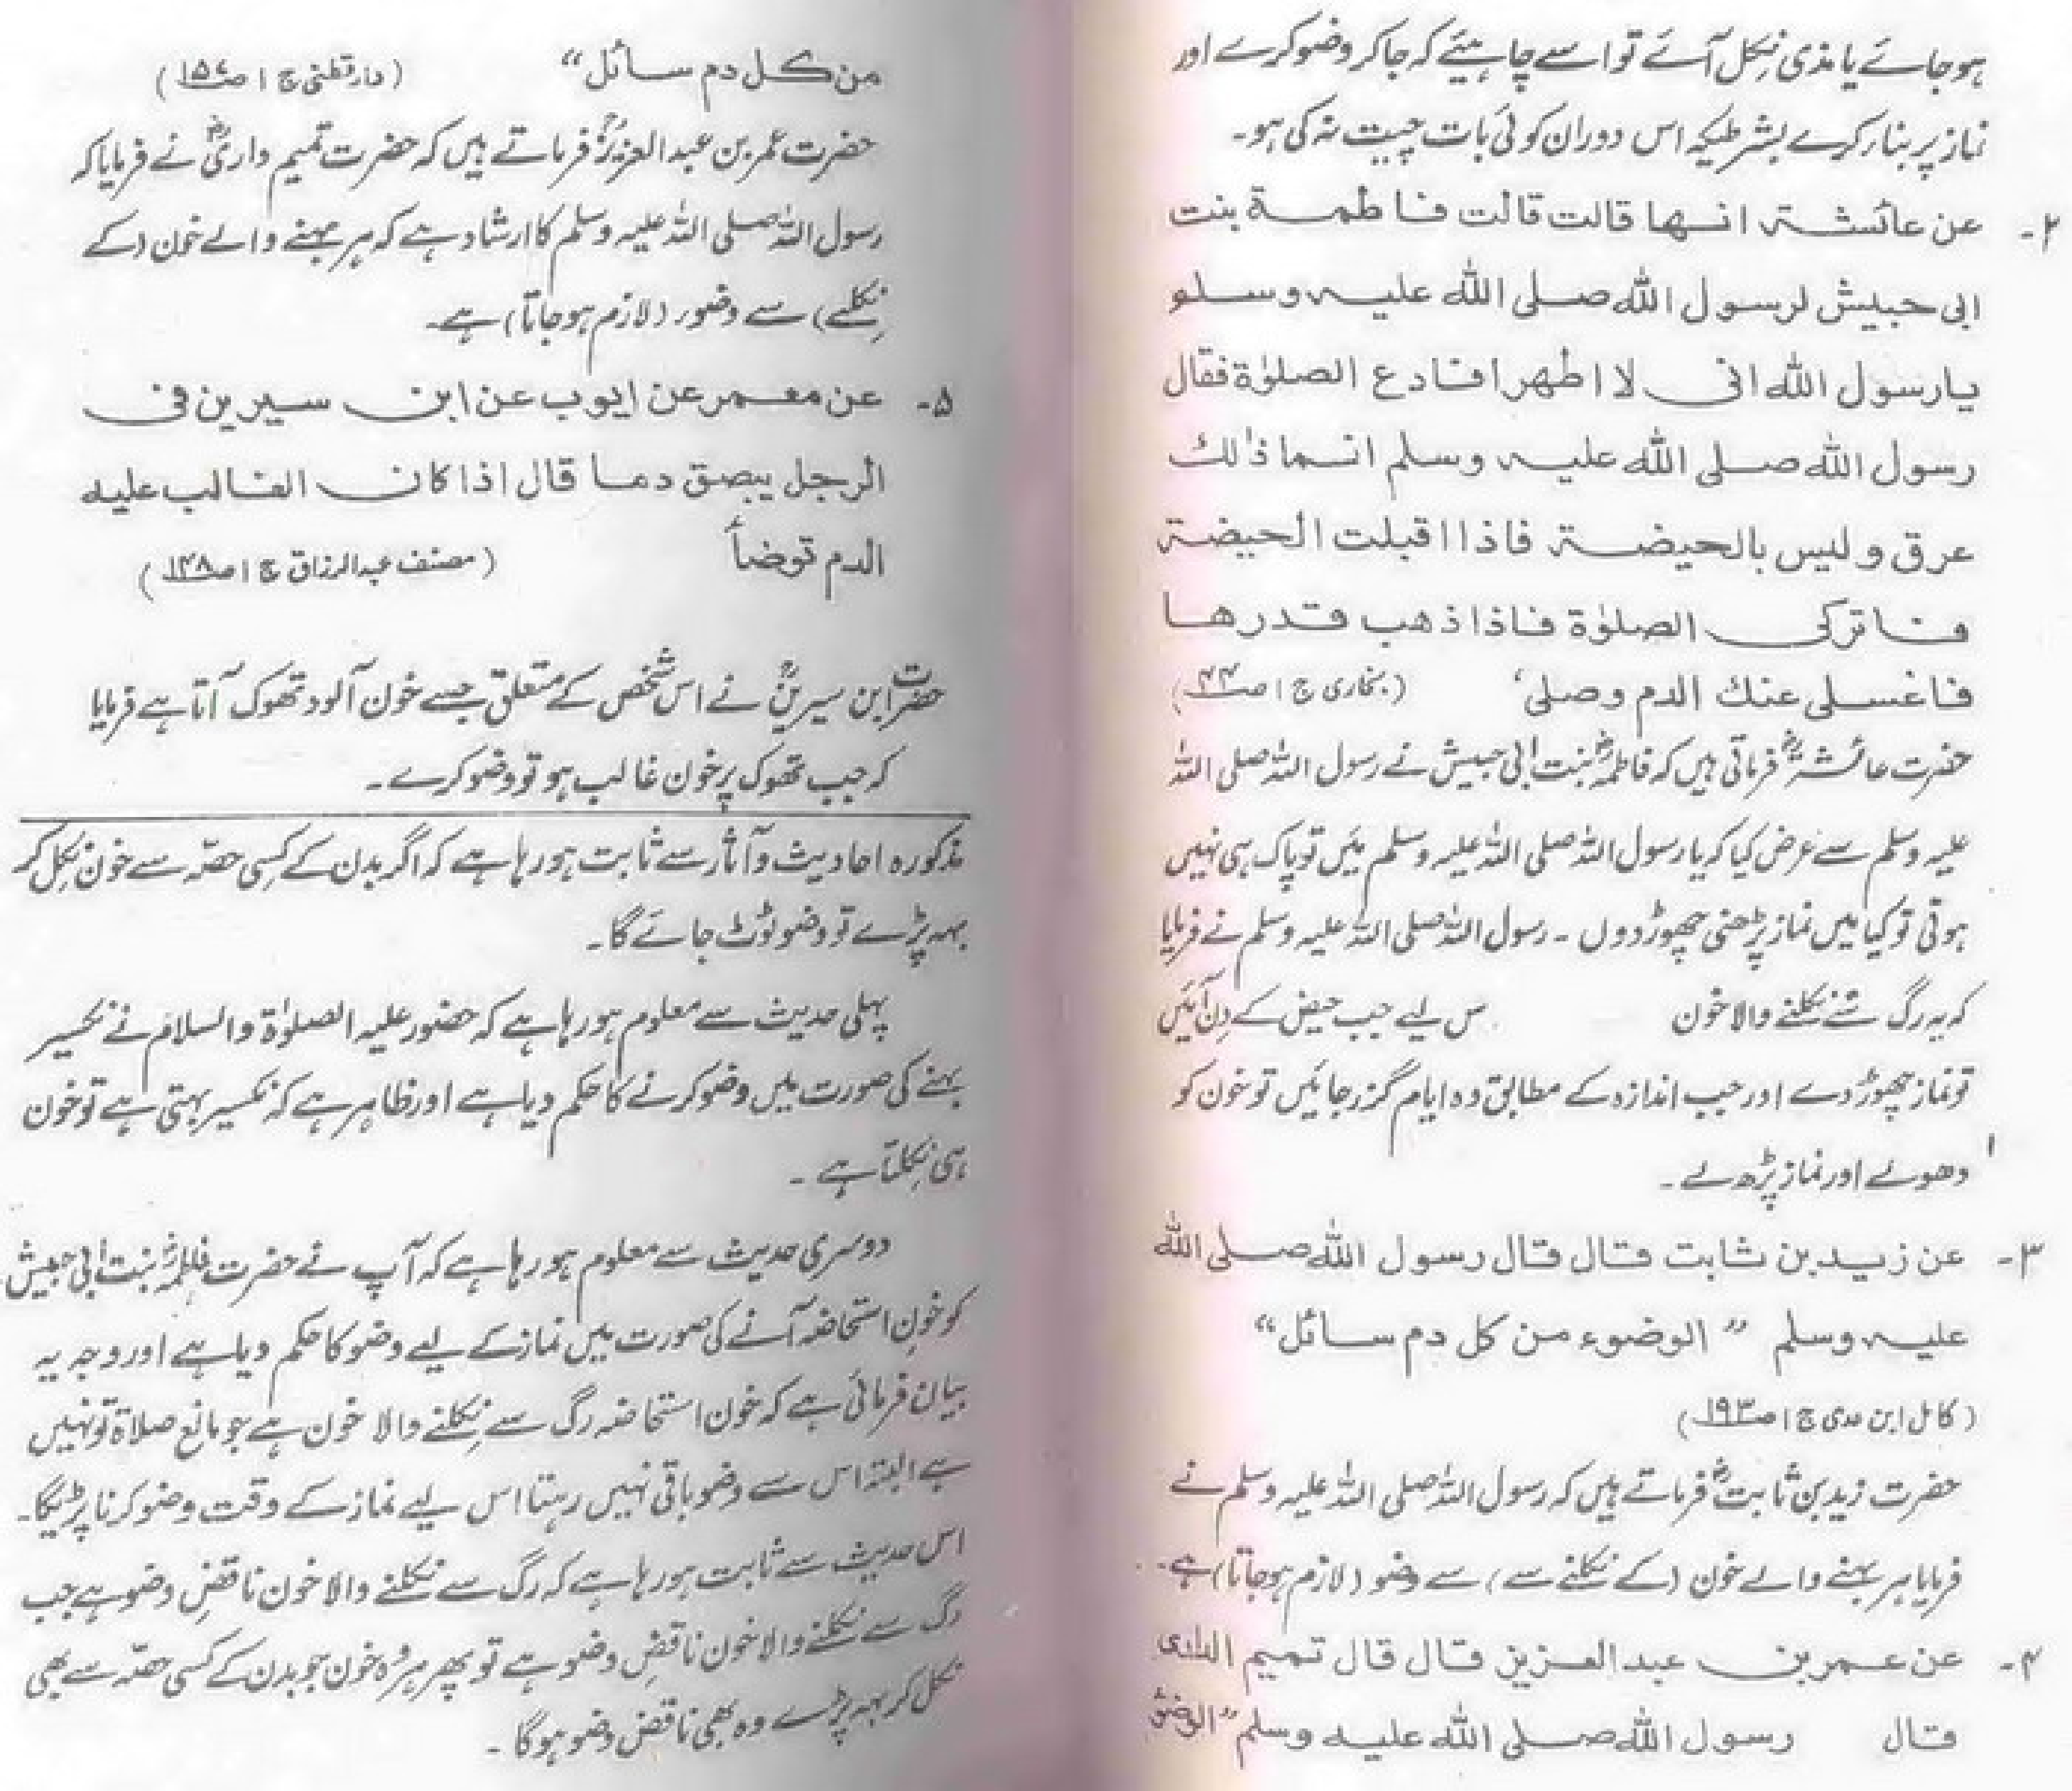 ہو جائے یا مذی نکل آئے تو اسے چاہیئے کہ جا کر وضو کرے اور
نماز پر بنار کرے بشرطیکہ اس دوران کوئی بات چیت نہ کی ہو۔
۲- عن عائشۃ انھا قالت قالت فاطمة بنت
ابی حبیش لرسول اللہ صلی اللہ علیہ وسلو
یارسول اللہ انی لا اطھر افادع الصلوٰة فقال
رسول اللہ صلی اللہ علیہ وسلم انما ذٰلك
عرق ولیس بالحیضۃ فاذا اقبلت الحیضۃ
فاترکی الصلوٰة فاذا ذھب قدرھا
فاغسلی عنك الدم وصلی، (بخاری ج ۱ ص۴۴)
حضرت عائشہؓ فرماتی ہیں کہ فاطمہؓ بنت ابی حبیش نے رسول اللہ صلی اللہ
علیہ وسلم سے عرض کیا کہ یا رسول اللہ صلی اللہ علیہ وسلم میں تو پاک ہی نہیں
ہوتی تو کیا میں نماز پڑھنی چھوڑ دوں ۔ رسول اللہ صلی اللہ علیہ وسلم نے فرمایا
کہ یہ رگ سے نکلنے والا خون س لیے جب حیض کے دن آئیں
تو نماز چھوڑ دے اور جب اندازہ کے مطابق وہ ایام گزر جائیں تو خون کو
دھولے اور نماز پڑھ لے ۔
۳- عن زید بن ثابت قال قال رسول اللہ صلی اللہ
علیہ وسلم ” الوضوء من کل دم سائل“
(کامل ابن عدی ج ۱ ص۱۹۳)
حضرت زید بن ثابتؓ فرماتے ہیں کہ رسول اللہ صلی اللہ علیہ وسلم نے
فرمایا ہر بہنے والے خون (کے نکلنے سے) سے وضو (لازم ہو جاتا) ہے۔
۴- عن عمر بن عبد العزیز قال قال تمیم الداری
قال رسول اللہ صلی اللہ علیہ وسلم ”الوضؤ
من کل دم سائل“ (دارقطنی ج ۱ ص۱۵۷)
حضرت عمر بن عبد العزیزؒ فرماتے ہیں کہ حضرت تمیم داریؓ نے فرمایا کہ
رسول اللہ صلی اللہ علیہ وسلم کا ارشاد ہے کہ ہر بہنے والے خون (کے
نکلنے) سے وضور (لازم ہو جاتا) ہے۔
۵- عن معمر عن ایوب عن ابن سیرین فی
الرجل یبصق دما قال اذا کان الغالب علیه
الدم توضأ (مصنف عبدالرزاق ج ۱ ص۱۴۸)
حضرت ابن سیرینؒ نے اس شخص کے متعلق جسے خون آلود تھوک آتا ہے فرمایا
کہ جب تھوک پر خون غالب ہو تو وضو کرے ۔
مذکورہ احادیث و آثار سے ثابت ہو رہا ہے کہ اگر بدن کے کسی حصّہ سے خون نکل کر
بہہ پڑے تو وضو ٹوٹ جائے گا ۔
پہلی حدیث سے معلوم ہو رہا ہے کہ حضور علیہ الصلوٰة والسلام نے نکسیر
بہنے کی صورت میں وضو کرنے کا حکم دیا ہے اور ظاہر ہے کہ نکسیر بہتی ہے تو خون
ہی نکلتا ہے ۔
دوسری حدیث سے معلوم ہو رہا ہے کہ آپ نے حضرت فاطمہؓ بنت ابی حبیش
کو خون استحاضہ آنے کی صورت میں نماز کے لیے وضو کا حکم دیا ہے اور وجہ یہ
بیان فرمائی ہے کہ خون استحاضہ رگ سے نکلنے والا خون ہے جو مانع صلاۃ تو نہیں
ہے البتہ اس سے وضو باقی نہیں رہتا اس لیے نماز کے وقت وضو کرنا پڑیگا۔
اس حدیث سے ثابت ہو رہا ہے کہ رگ سے نکلنے والا خون ناقضِ وضو ہے جب
رگ سے نکلنے والا خون ناقضِ وضو ہے تو پھر ہر وہ خون جو بدن کے کسی حصّہ سے بھی
نکل کر بہہ پڑے وہ بھی ناقض وضو ہو گا ۔